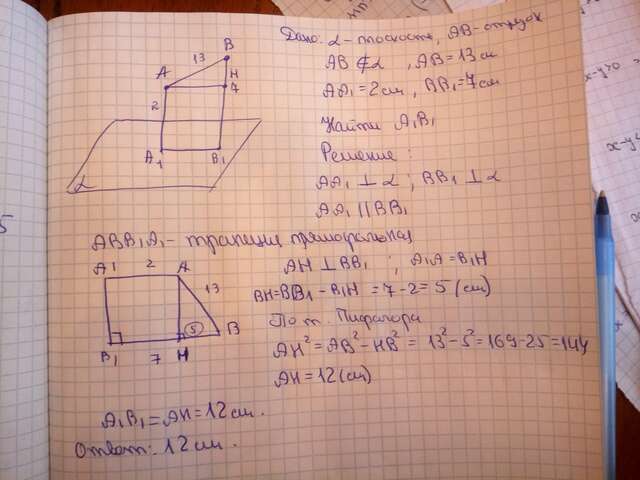 Дано: α - плоскость, AB - отрезок
AB ⊄ α, AB = 13 см
AA₁ = 2 см, BB₁ = 7 см
Найти A₁B₁
Решение:
AA₁ ⊥ α; BB₁ ⊥ α
AA₁ || BB₁
B
13
A
H
7
2
A₁
B₁
α
ABB₁A₁ - трапеция прямоугольная
A1
2
A
13
5
B
B₁
7
H
AH ⊥ BB₁; A₁A = B₁H
BH = BB₁ - B₁H = 7 - 2 = 5 (см)
По т. Пифагора
AH² = AB² - HB² = 13² - 5² = 169 - 25 = 144
AH = 12 (см)
A₁B₁ = AH = 12 см.
Ответ: 12 см.
5
x-y>0
x-y